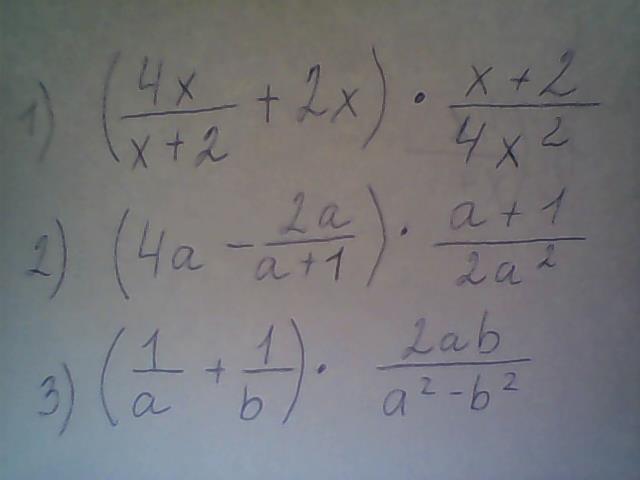 1) (4x/(x+2) + 2x) · (x+2)/(4x²)
2) (4a - 2a/(a+1)) · (a+1)/(2a²)
3) (1/a + 1/b) · 2ab/(a²-b²)